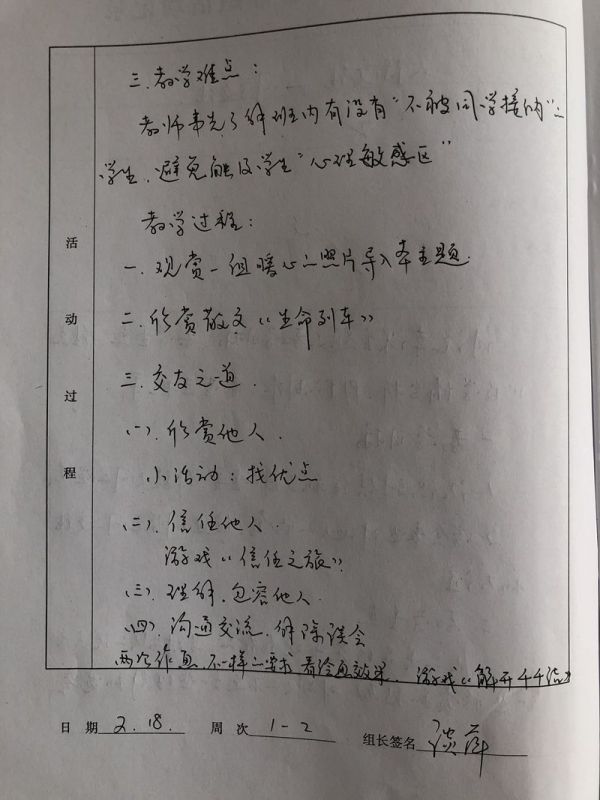 三.教学难点:
教师事先了解班内有没有"不被同学接纳"的
学生.避免触及学生"心理敏感区"
教学过程:
一.观赏一组暖心的照片导入本主题.
二.欣赏散文《生命列车》
三.交友之道.
(一).欣赏他人.
小活动:找优点
(二).信任他人.
游戏《信任之旅》.
(三).理解.包容他人.
(四).沟通交流.解除误会
两次作画.不一样的要求 看绘画效果.游戏《解开千千结》
活动过程
日 期 2.18. 周 次 1-2 组长签名